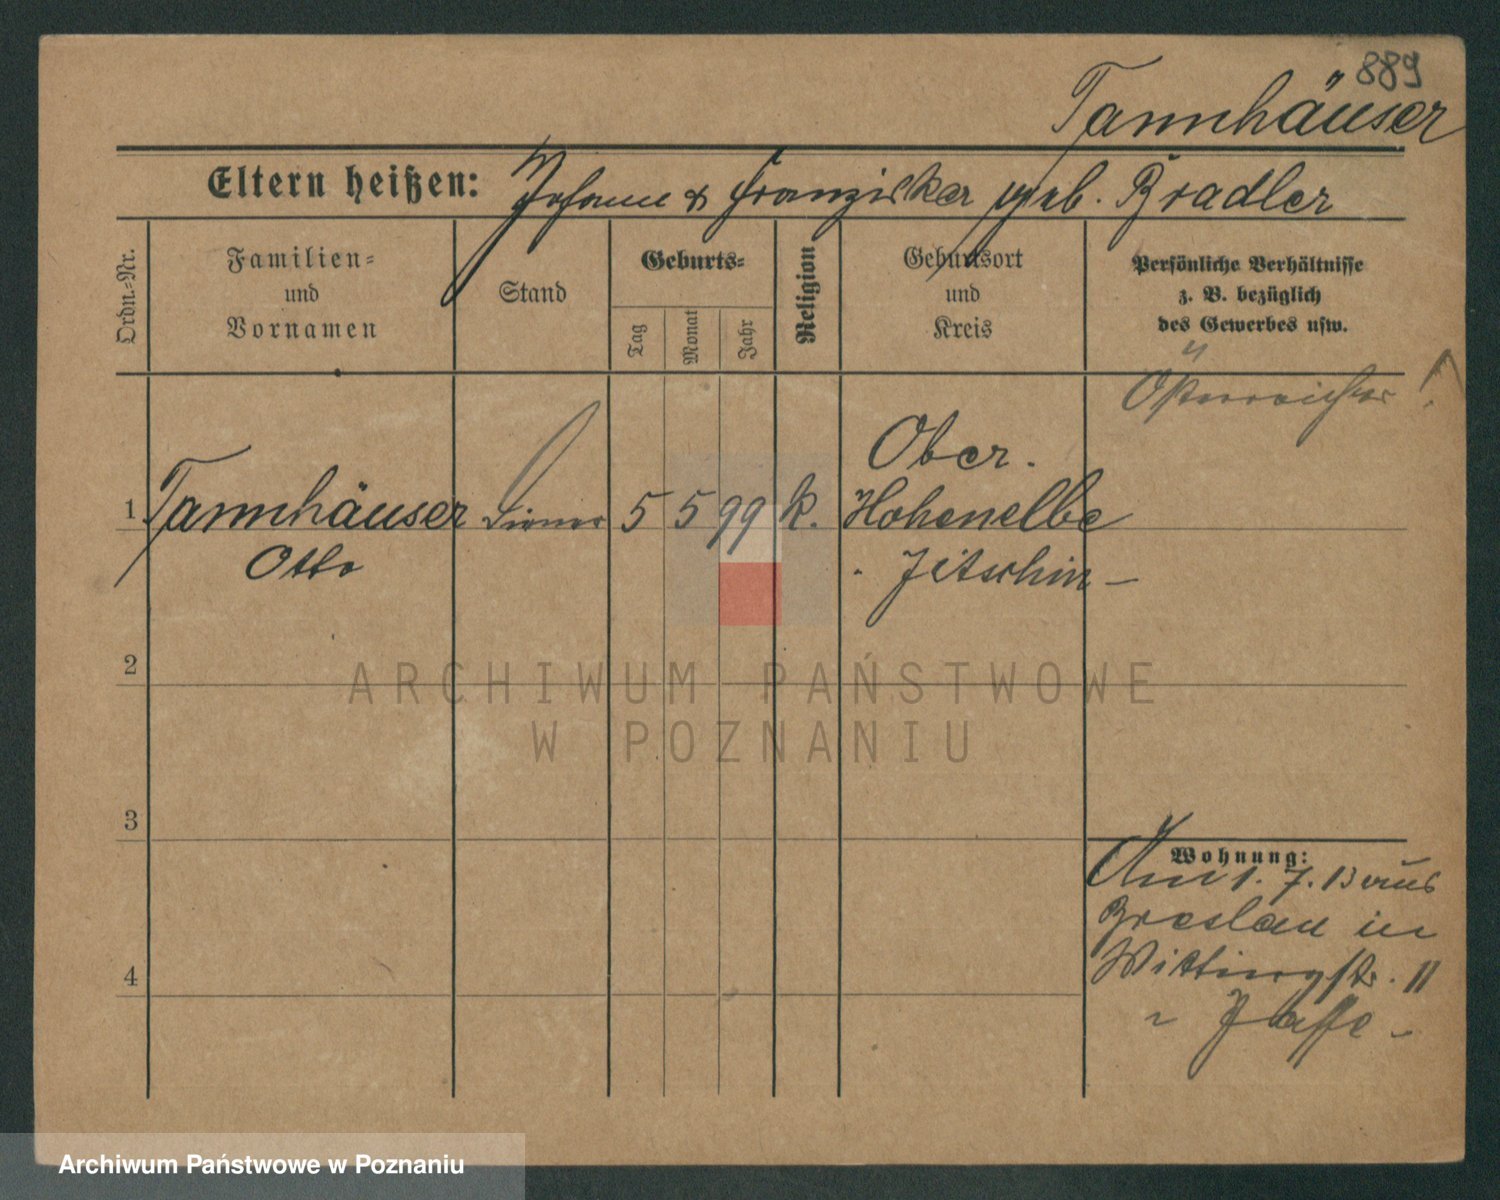 889
Tannhäuser
Eltern heißen: Johann & Franziska geb. Bradler
Ordn.-Nr.
Familien-
und
Vornamen
Stand
Geburts-
Tag
Monat
Jahr
Religion
Geburtsort
und
Kreis
Persönliche Verhältnisse
z. B. bezüglich
des Gewerbes usw.
Österreicher !
1 Tannhäuser 5 5 99 k. Ober.
Hohenelbe
Otto
Jitschin
2
3
4
Wohnung:
Am 1. 7. 13 aus
Breslau in
11
ARCHIWUM PAŃSTWOWE
W POZNANIU
Archiwum Państwowe w Poznaniu